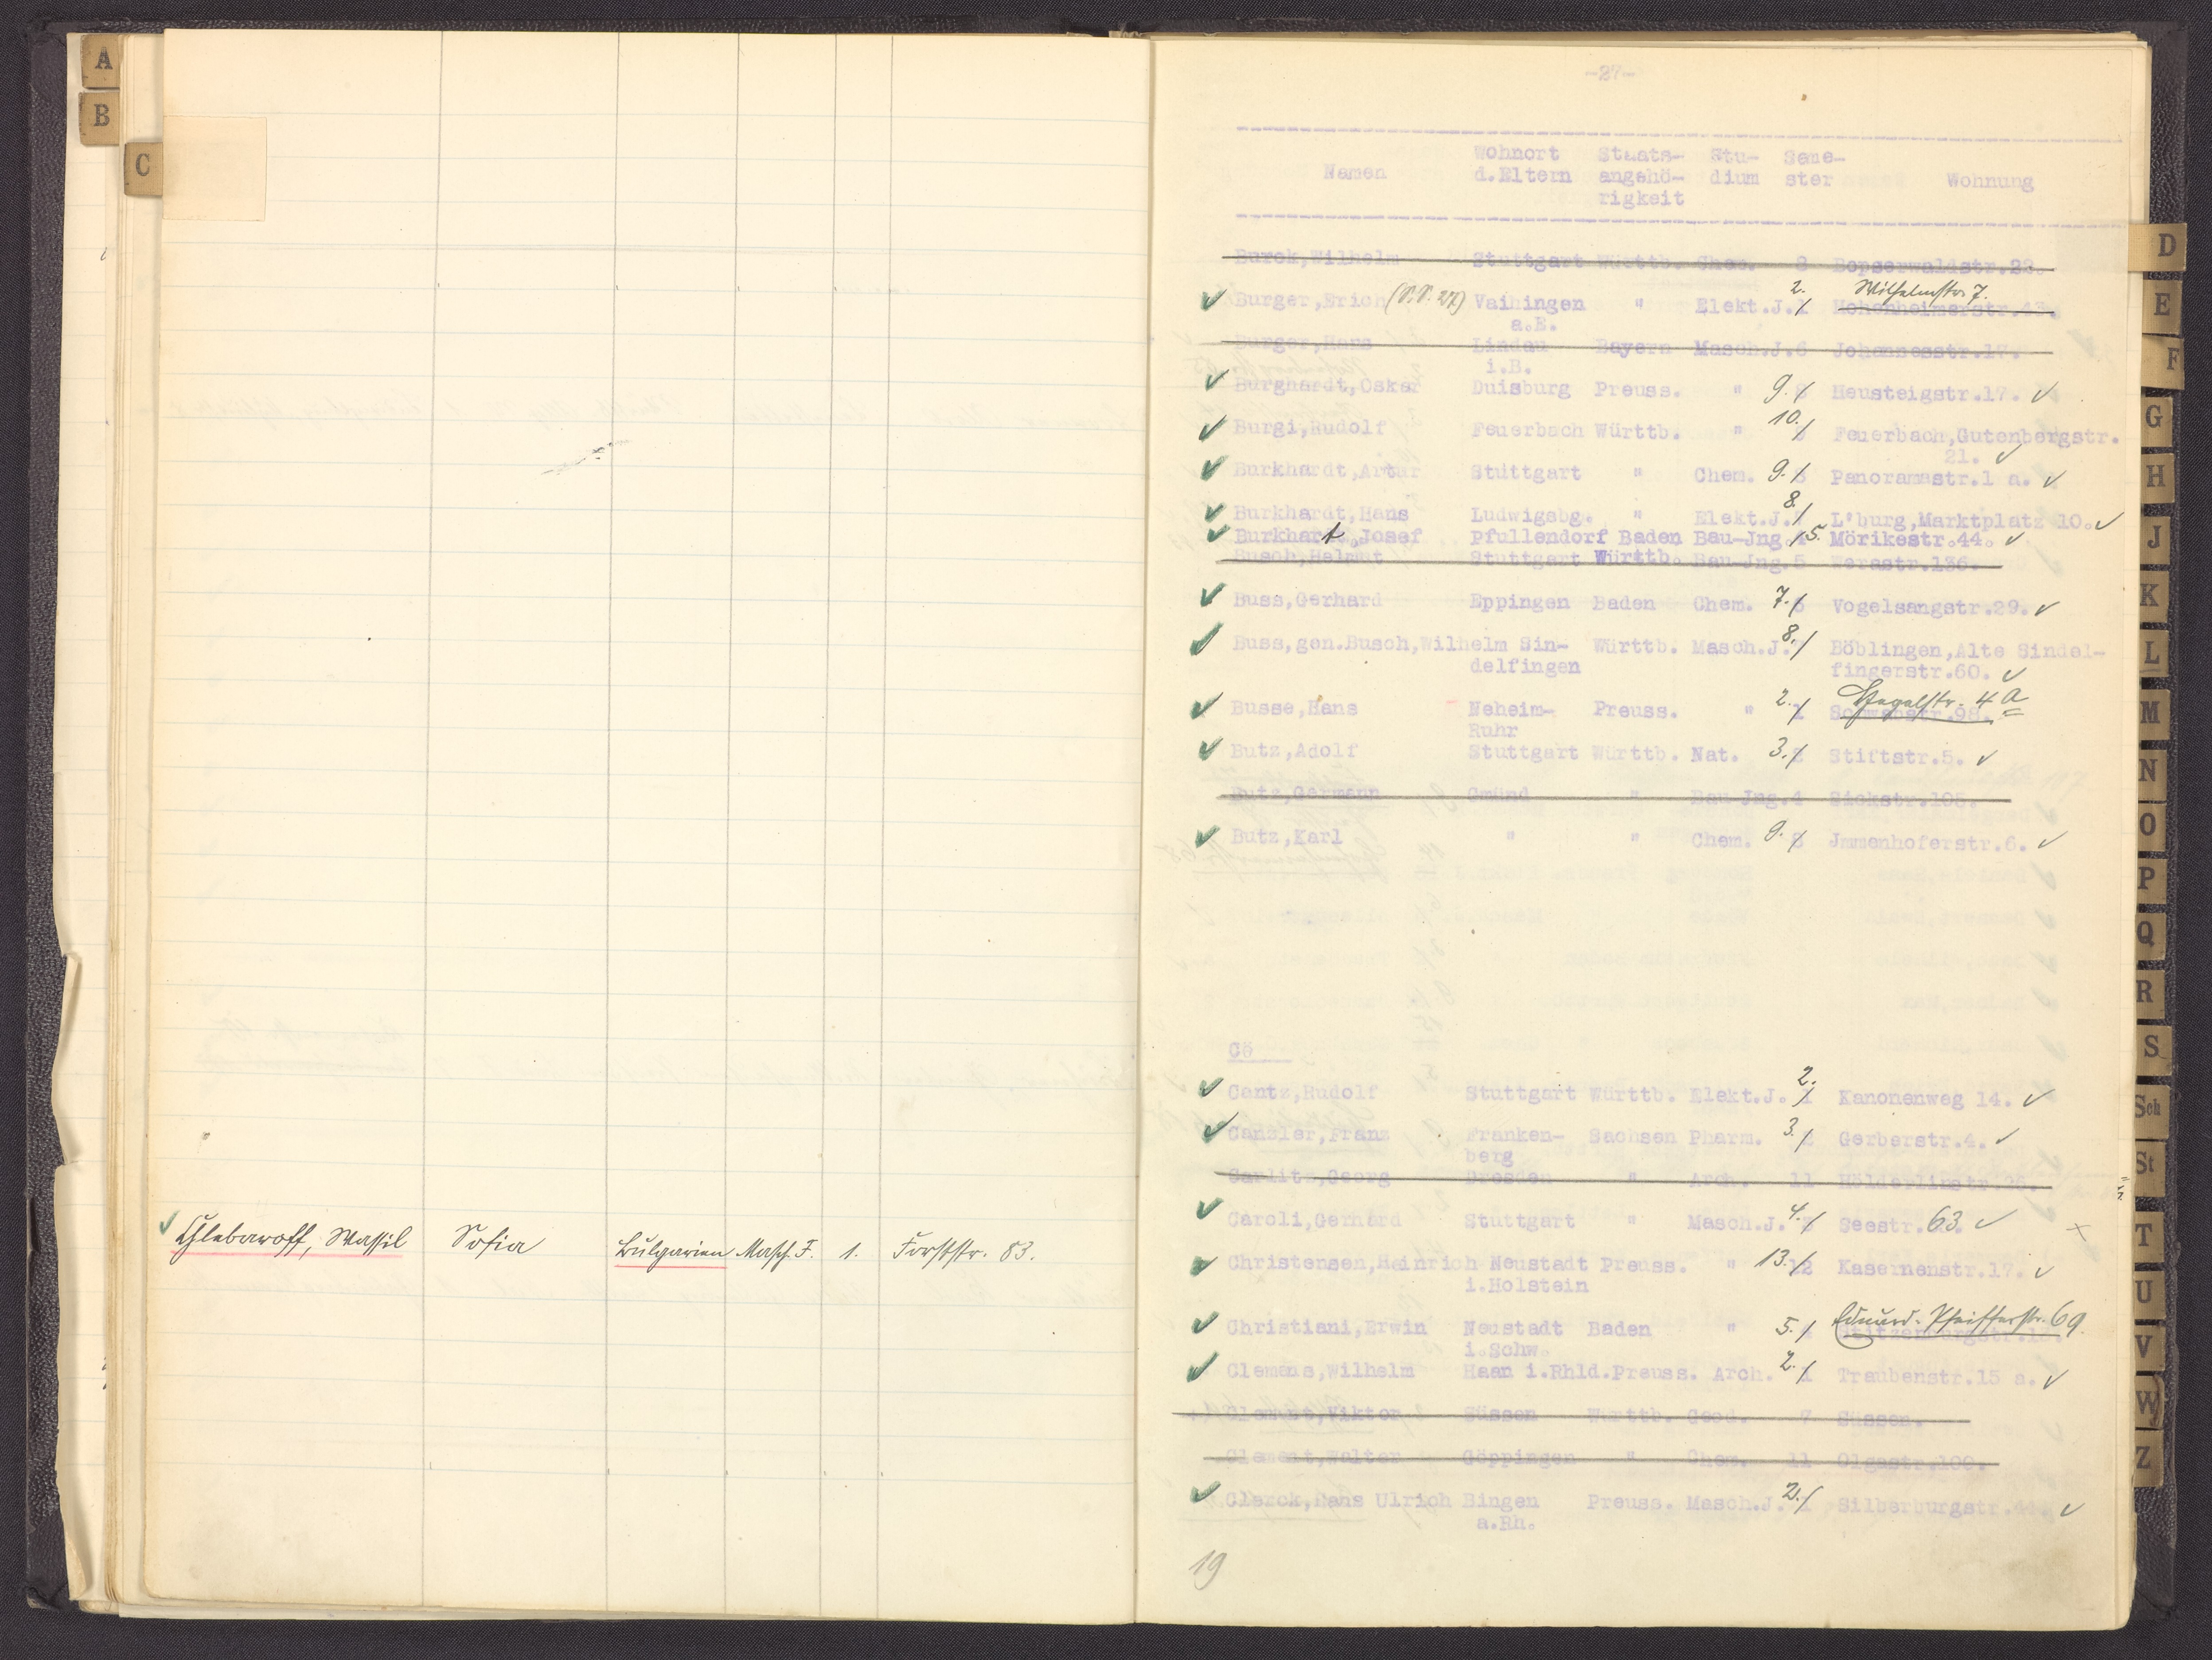 A
B
C
Chlebaroff, Wassil Sofia Bulgarien Masch.J. 1. Forststr. 83.
-27-
Wohnort Staats- Stu- Seme-
Namen d.Eltern angehö- dium ster Wohnung
rigkeit
Burck,Wilhelm Stuttgart Württb. Chem. 8 Bopserwaldstr.22.
2. Wilhelmstr 7.
Burger,Erich Vaihingen " Elekt.J.1 Hohenheimerstr.
a.E.
Burger,Hans Lindau Bayern Masch.J.6 Johannesstr.17.
i.B.
Burghardt,Oskar Duisburg Preuss. " 9. 8 Heusteigstr.17.
10.
Burgi,Rudolf Feuerbach Württb. " Feuerbach,Gutenbergstr.
21.
Burkhardt,Artur Stuttgart " Chem. 9. 8 Panoramastr.1 a.
8.
Burkhardt,Hans Ludwigsbg. " Elekt.J. L'burg,Marktplatz 10.
Burkhart,Josef Pfullendorf Baden Bau-Jng. 5. Mörikestr.44.
Busch,Helmut Stuttgart Württb. Bau-Jng.5 Werastr.136.
Buss,Gerhard Eppingen Baden Chem. 7. Vogelsangstr.29.
8.
Buss,gen.Busch,Wilhelm Sin- Württb. Masch.J. Böblingen,Alte Sindel-
delfingen fingerstr.60.
Hegelstr. 4 a
Busse,Hans Neheim- Preuss. " 2. 1 Schwabstr.98.
Ruhr
Butz,Adolf Stuttgart Württb. Nat. 3. 2 Stiftstr.5.
Butz,Germann Gmünd " Bau-Jng.4 Sickstr.105.
Butz,Karl " " Chem. 9. 8 Jmmenhoferstr.6.
Cö
2.
Cantz,Rudolf Stuttgart Württb. Elekt.J. 1 Kanonenweg 14.
Canzler,Franz Franken- Sachsen Pharm. 3. 2 Gerberstr.4.
berg
Carlitz,Georg Dresden " Arch. 11 Hölderlinstr.
Caroli,Gerhard Stuttgart " Masch.J. 4. Seestr. 63.
Christensen,Heinrich Neustadt Preuss. " 13. 12 Kasernenstr.17.
i.Holstein
Eduard-Pfeifferstr. 69.
Christiani,Erwin Neustadt Baden " 5.
i.Schw.
Clemens,Wilhelm Haan i.Rhld.Preuss. Arch. 2. 1 Traubenstr.15 a.
Clement,Viktor Süssen Württb. Geod. 7 Süssen.
Clement,Walter Göppingen " Chem. 11 Olgastr.100.
Clerck,Hans Ulrich Bingen Preuss. Masch.J. 2. 1 Silberburgstr.
a.Rh.
19
D
E
F
G
H
J
K
L
M
N
O
P
Q
R
S
Sch
St
T
U
V
W
Z